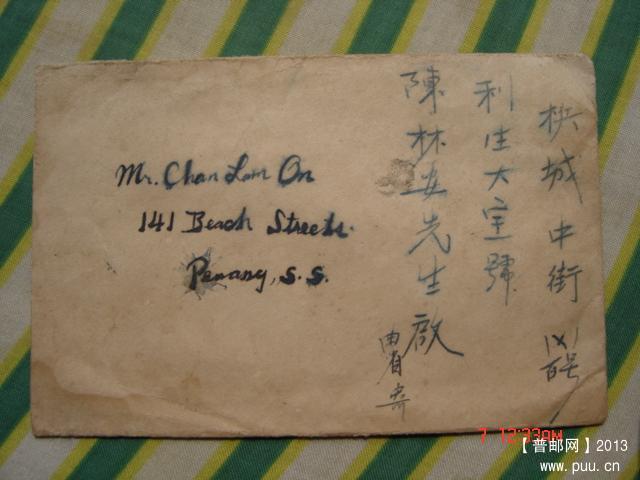 Mr. Chan Lam On
141 Beach Street.
Penang, S.S.
梹城中街〡〤〡百号
利生大宝號
陳林安先生啟
由省寄
7 12:33AM
【普邮网】2013
www.puu.cn